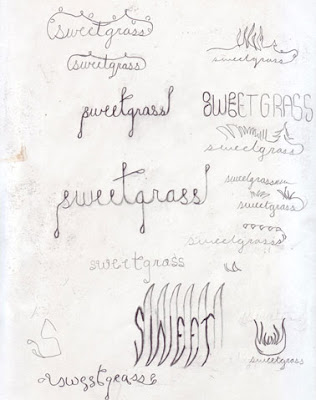 sweetgrass
sweetgrass
sweetgrass
sweetgrass
SWEETGRASS
sweetgrass
sweetgrass
sweetgrass
sweetgrass
sweetgrass
sweetgrass
sweetgrass
SWEET
S
sweetgrass
sweetgrass